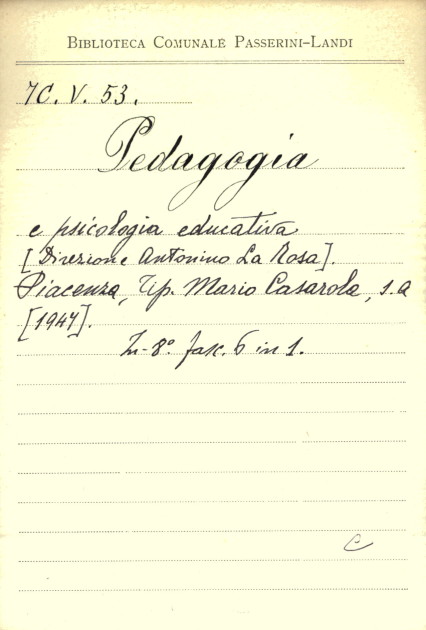 BIBLIOTECA COMUNALE PASSERINI-LANDI
7C. V. 53.
Pedagogia
e psicologia educativa
[Direzione Antonino La Rosa].
Piacenza, Tip. Mario Casarola, s.a
[1947].
In-8° fasc. 6 in 1.
C